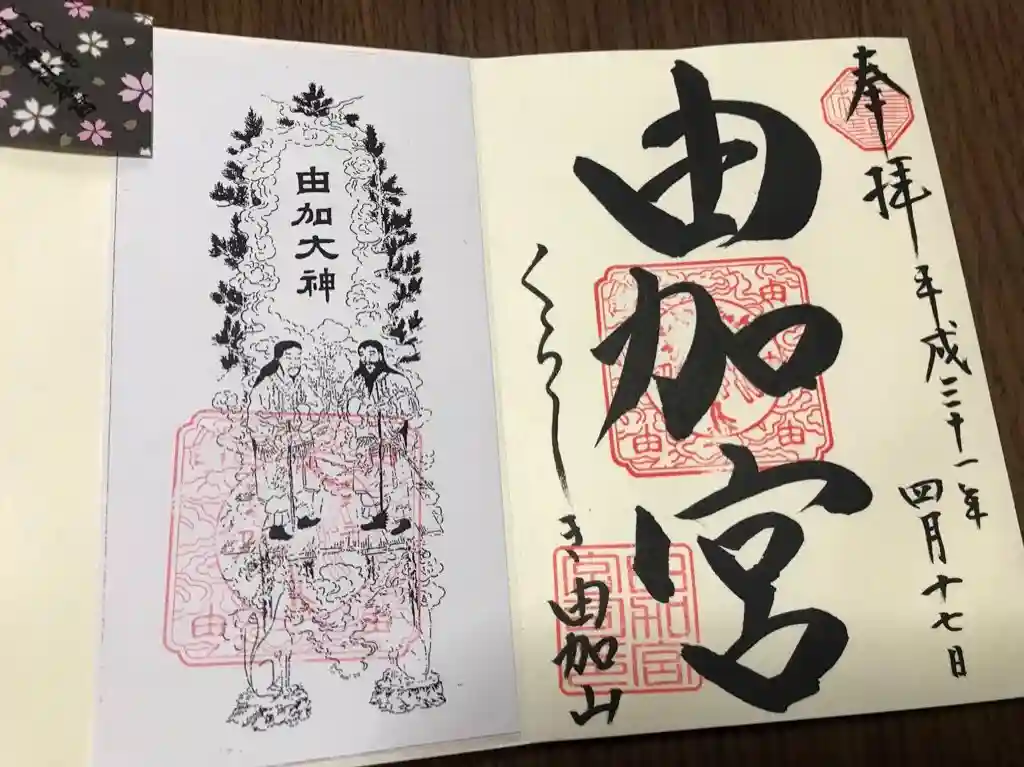 奉拝
平成三十一年
四月十七日
由加宮
くらしき由加山
由加大神
由
由
由
由